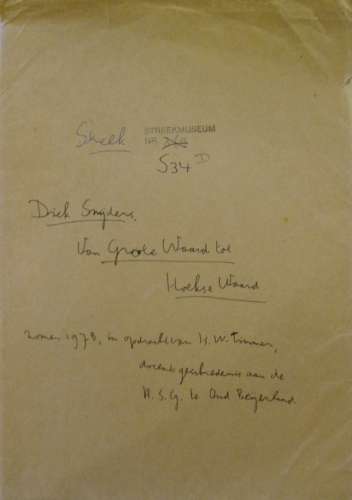 Streek STREEKMUSEUM
NR 268
S34 D
Dick Snijders.
Van Groote Waard tot
Hoekse Waard
zomer 1978, in opdracht van H. W. Timmer,
docent geschiedenis aan de
R.S.G. te Oud Beijerland